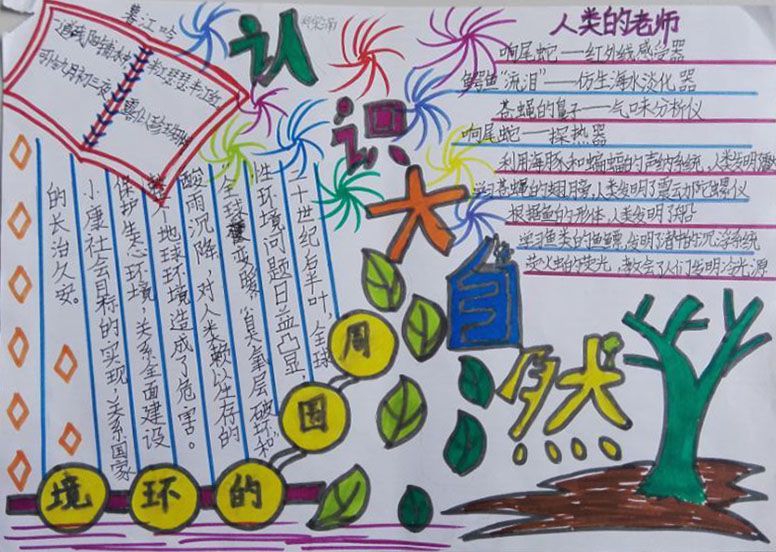 认识大自然
暮江吟
一道残阳铺水中
半江瑟瑟半江红
可怜九月初三夜
露似珍珠月似弓
人类的老师
响尾蛇——红外线感受器
鳄鱼“流泪”——仿生海水淡化器
苍蝇的鼻子——气味分析仪
响尾蛇——探热器
利用海豚和蝙蝠的声纳系统,人类发明
学习苍蝇的翅膀,人类发明了震动陀螺仪
根据鱼的形体,人类发明了船
学习鱼类的鱼鳔,发明了潜艇的沉浮系统
萤火虫的荧光,教会了人们发明冷光源
二十世纪后半叶,全球
性环境问题日益凸显,
全球变暖,臭氧层破坏和
酸雨沉降,对人类赖以生存的
整个地球环境造成了危害。
保护生态环境,关系全面建设
小康社会目标的实现,关系国家
的长治久安。
周围的环境